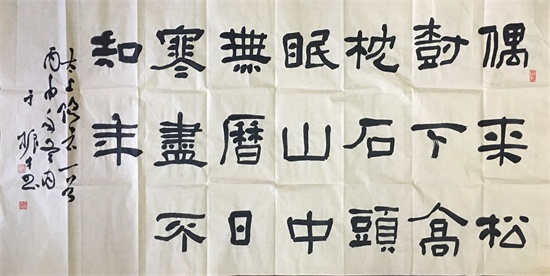 偶来松
樹下高
枕石頭
眠山中
無曆日
寒盡不
知年
太上隐者一首
丙申冬月
于
书